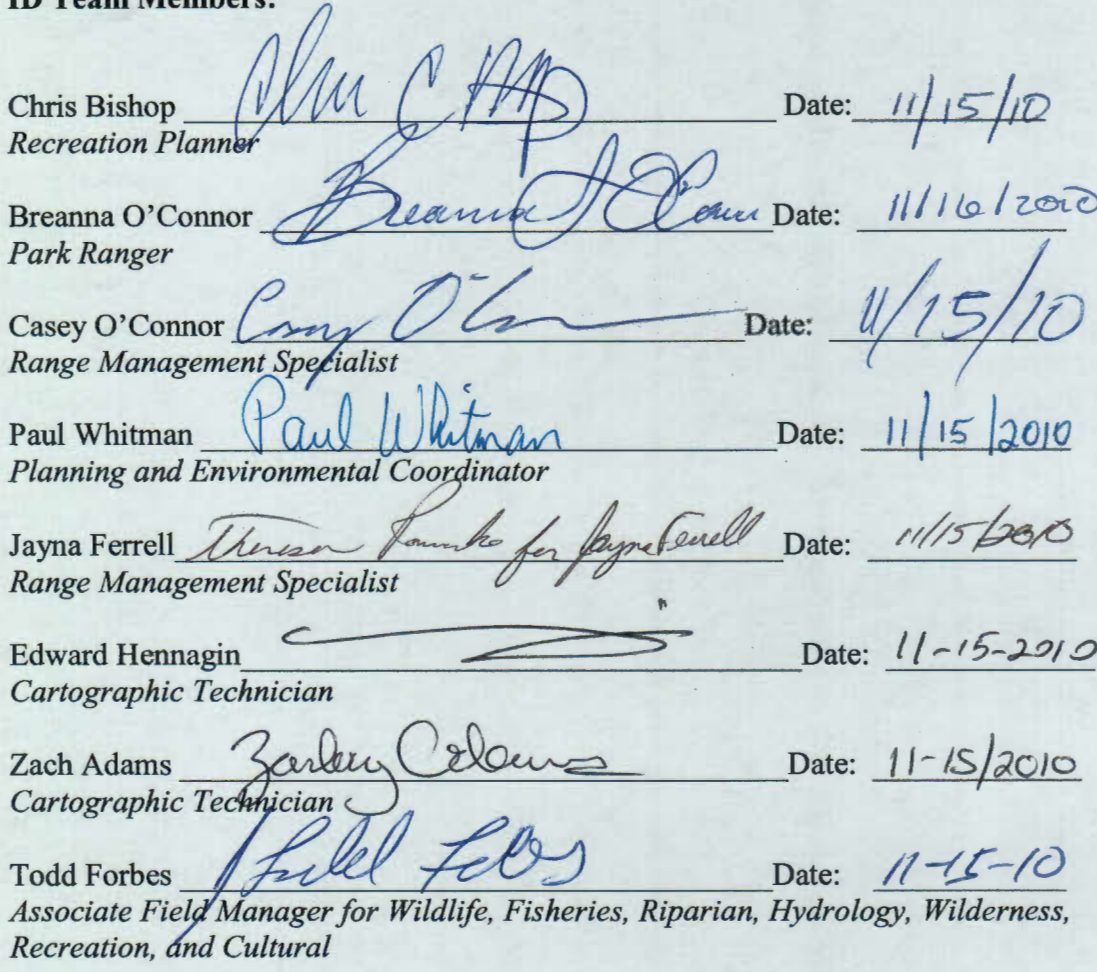 ID Team Members:
Chris Bishop Date: 11/15/10
Recreation Planner
Breanna O'Connor Breanna O'Connor Date: 11/16/2010
Park Ranger
Casey O'Connor Casey O'Connor Date: 11/15/10
Range Management Specialist
Paul Whitman Paul Whitman Date: 11/15/2010
Planning and Environmental Coordinator
Jayna Ferrell Theresa for Jayna Ferrell Date: 11/15/2010
Range Management Specialist
Edward Hennagin Date: 11-15-2010
Cartographic Technician
Zach Adams Date: 11-15/2010
Cartographic Technician
Todd Forbes Todd Forbes Date: 11-15-10
Associate Field Manager for Wildlife, Fisheries, Riparian, Hydrology, Wilderness,
Recreation, and Cultural